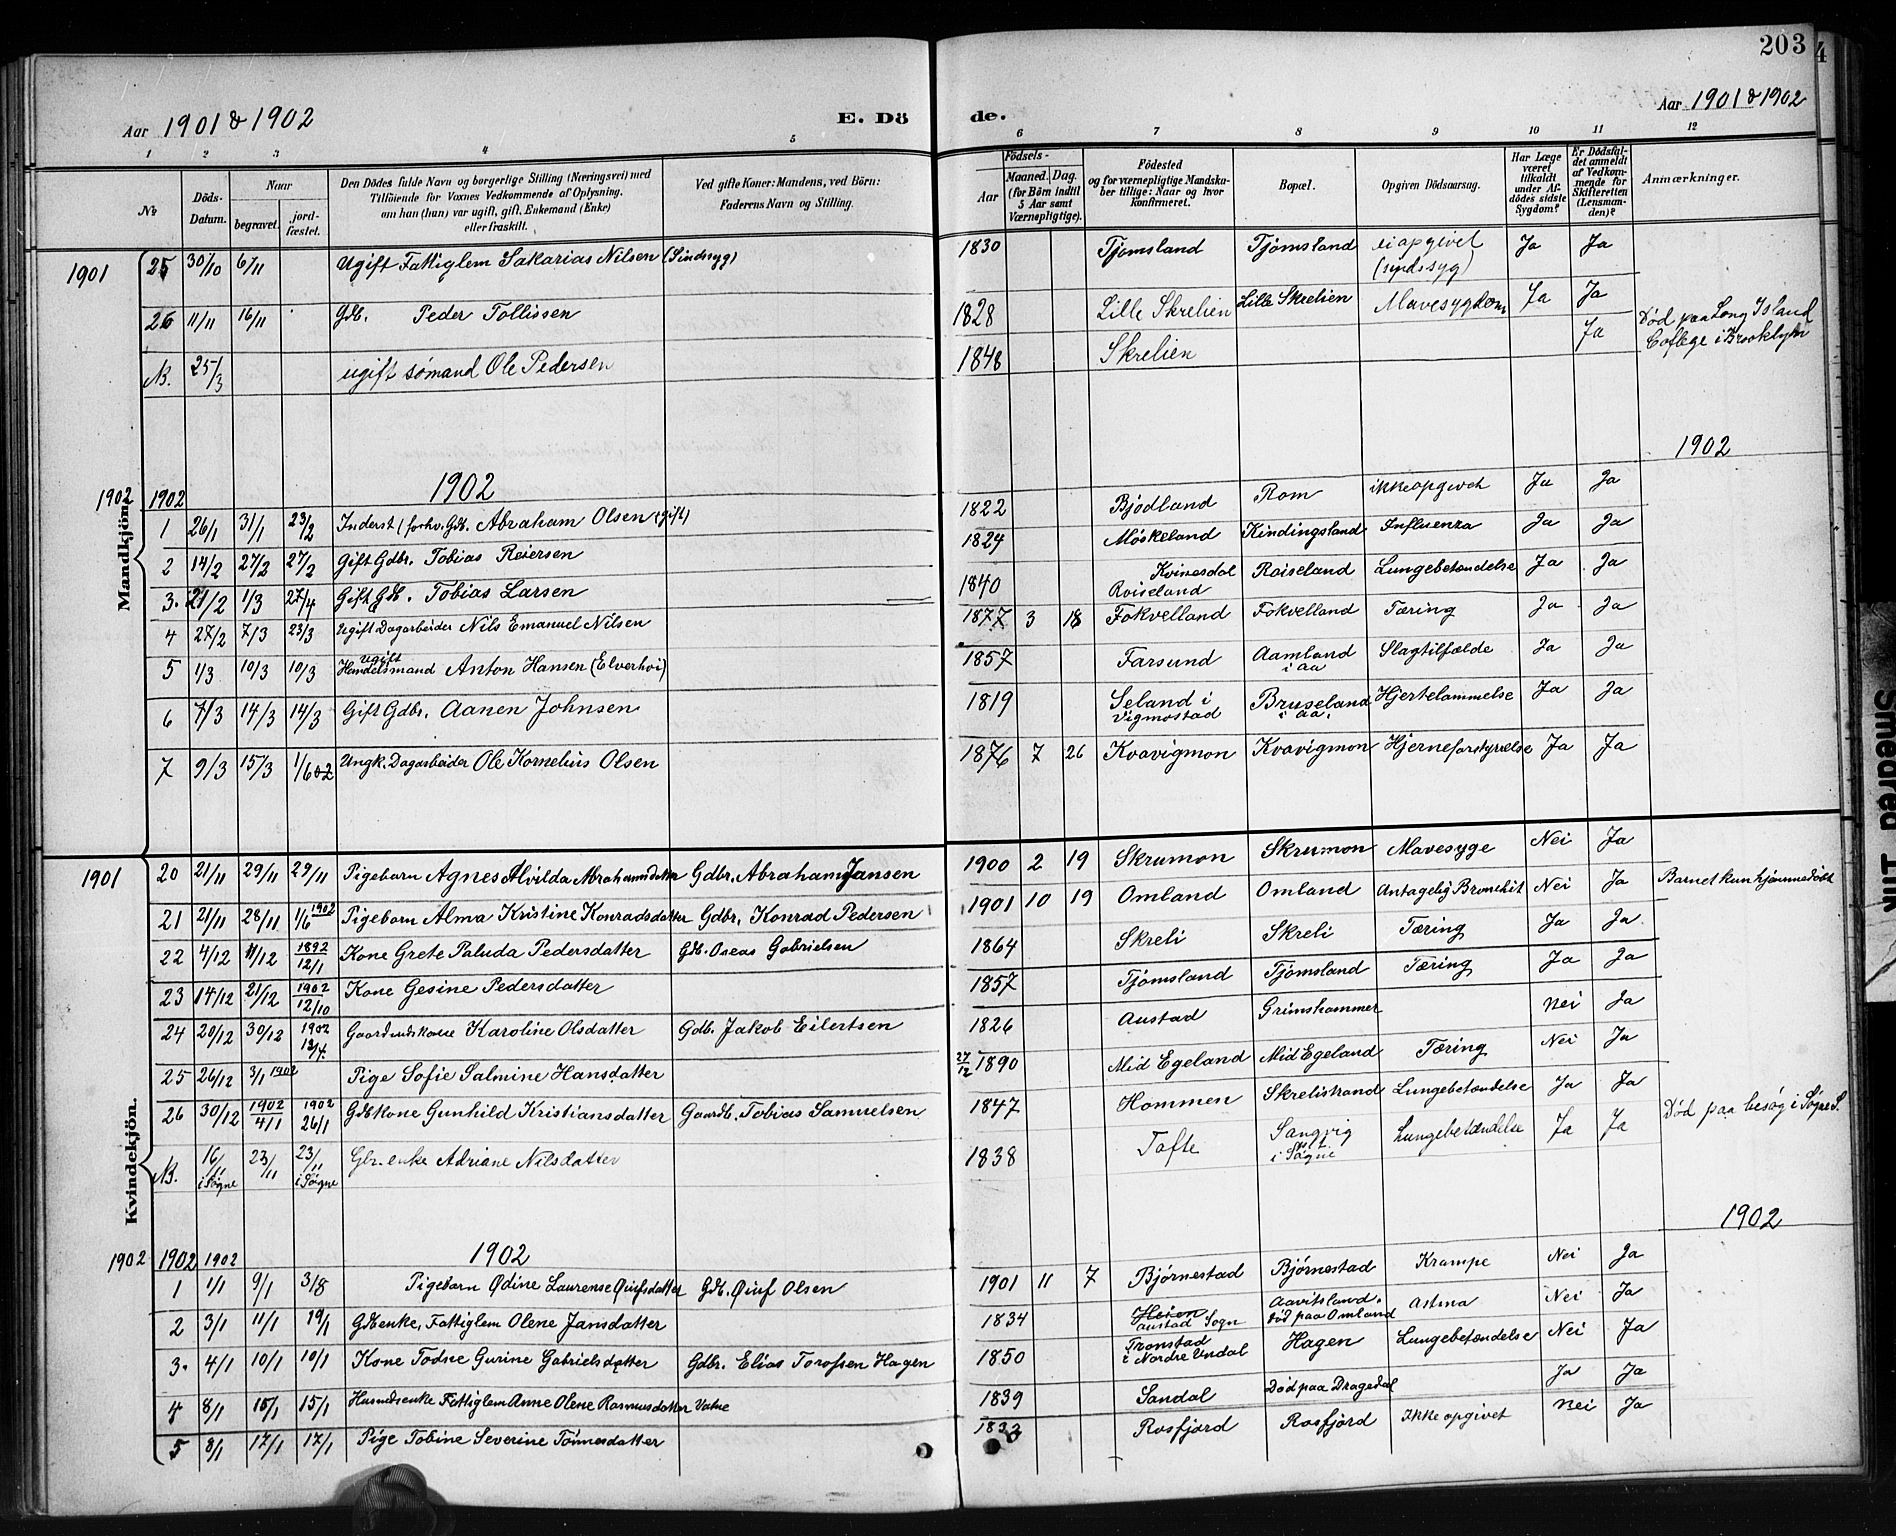 203
4
Aar 1901 & 1902
E. Dö
de.
Aar 1901 & 1902
1 2 3 4 5 6 7 8 9 10 11 12
No
Döds-Datum.
Naar
begravet.
jord-fæstet.
Den Dödes fulde Navn og borgerlige Stilling (Næringsvei) med
Tilföiende for Voxnes Vedkommende af Oplysning,
om han (hun) var ugift, gift, Enkemand (Enke)
eller fraskilt.
Ved gifte Koner: Mandens, ved Börn:
Faderens Navn og Stilling.
Födsels-
Aar
Maaned. Dag.
(for Börn indtil
5 Aar samt
Værnepligtige).
Födested
og for værnepligtige Mandska-
ber tillige: Naar og hvor
konfirmeret.
Bopæl.
Opgiven Dödsaarsag.
Har Læge
været
tilkaldt
under Af-
dödes sidste
Sygdom?
Er Dödsfal-
det anmeldt
af Vedkom-
mende for
Skifteretten
(Lensman-
den)?
Anmærkninger.
Mandkjön.
1901 25 30/10 6/11 Ugift Fattiglem Sakarias Nilsen (Sindssyg) 1830 Tjomsland Tjomsland ei opgivet (sindssyg) Ja Ja
26 11/11 16/11 Gdb. Peder Tollissen 1828 Lille Skrelien Lille Skrelien Mavesygdom Ja Ja
N. 25/3 ugift sømand Ole Pedersen 1848 Skrelien Ja Død paa Long Island College i Brooklyn
1902 1902 1902 1902
1 26/1 31/1 23/2 Inderst (forhv. Gdb. Abraham Olsen (gift) 1822 Bjødland Rom ikke opgivet Ja Ja
2 14/2 27/2 27/2 Gift Gdbr. Tobias Reiersen 1824 Møskeland Kindingsland Influenza Ja Ja
3. 21/2 1/3 27/4 Gift Gdb. Tobias Larsen 1840 Kvinesdal Roiseland Roiseland Lungebetændelse Ja Ja
4 27/2 7/3 23/3 Ugift Dagarbeider Nils Emanuel Nilsen 1877 3 18 Fokvelland Fokvelland Tæring Ja Ja
5 1/3 10/3 10/3 ugift Handelsmand Anton Hansen (Elverhöi) 1857 Farsund Aamland i aa Slagtilfælde Ja Ja
6 7/3 14/3 14/3 Gift Gdbr. Aanen Johnsen 1819 Seland i Vigmostad Bruseland i aa. Hjertelammelse Ja Ja
7 9/3 15/3 1/6 02 Ungk. Dagarbeider Ole Kornelius Olsen 1876 7 26 Kvavigmon Kvavigmon Hjerneforstyrrelse Ja Ja
Kvindekjön.
1901 20 21/11 29/11 29/11 Pigebarn Agnes Alvilda Abrahamsdatter Gdbr. Abraham Jansen 1900 2 19 Skrumon Skrumon Mavesyge Nei Ja
21 21/11 28/11 1/6 1902 Pigebarn Alma Kristine Konradsdatter Gdbr. Konrad Pedersen 1901 10 19 Omland Omland Antagelig Bronchit Nei Ja Barnet kun hjemmedøbt
22 4/12 11/12 1892 12/1 Kone Grete Paluda Pedersdatter Gdb. Oseas Gabrielsen 1864 Skreli Skreli Tæring Ja Ja
23 14/12 21/12 1902 12/10 Kone Gesine Pedersdatter 1857 Tjomsland Tjomsland Tæring Ja Ja
24 20/12 30/12 1902 13/4. Karoline Olsdatter Gdb. Jakob Eilertsen 1826 Austad Grimshammer Nei Ja
25 26/12 3/1 1902 Pige Sofie Salmine Hansdatter 27/12 1890 Mid Egeland Mid Egeland Tæring Nei Ja
26 30/12 1902 4/1 1902 26/1 Gdb Kone Gunhild Kristiansdatter Gaardb. Tobias Samuelsen 1847 Hommen Skrelistrand Lungebetændelse Ja Ja
N. 16/11 i Søgne 23/11 23/11 i Søgne Gbr. enke Adriane Nilsdatter 1838 Tofte Sangvig i Søgne Lungebetændelse Ja Ja Død paa besøg i Søgne S.
1902 1902 1902 1902 1902
1 1/1 9/1 3/8 Pigebarn Ødine Laurense Øiufsdatter Gdb. Øiuf Olsen 1901 11 7 Bjørnestad Bjørnestad Krampe Nei Ja
2 3/1 11/1 19/1 Gdbenke, Fattiglem Olene Jansdatter 1834 Heien Austad Sogn Aavitsland. Død paa Omland Astma Nei Ja
3. 4/1 10/1 10/1 Kone Todne Gurine Gabrielsdatter Gdbr. Elias Torofsen Hagen 1850 Tronstad i Nordre Undal Hagen Lungebetændelse Nei Ja
4 8/1 15/1 15/1 Husmdsenke Fattiglem Anne Olene Rasmusdatter Vatne 1839 Sandal Død paa Dragedal Ja Ja
5 8/1 17/1 17/1 Pige Tobine Severine Tønnesdatter 1832 Rosfjord Rosfjord Ikke opgivet Nei Ja
Smedred Link